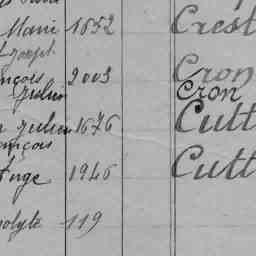 Marie 1652 Crest
Joseph
nçois 2003 Cron
Julien Cron
n Julien 1676 Cutt
ançois
Ange 1946 Cutt
polyte 119